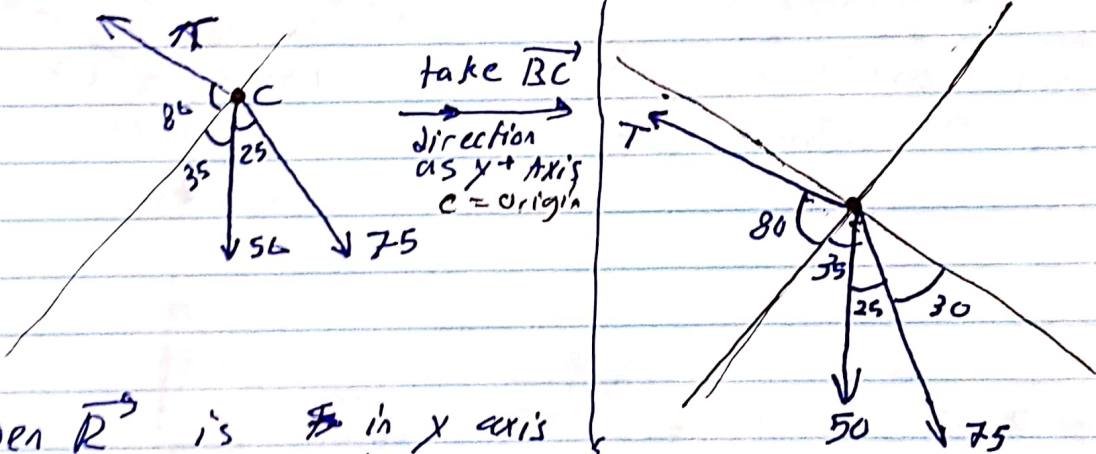 T
C
80
35
25
50
75
take BC
direction
as y+ Axis
C = origin
T
80
35
25
30
50
75
en R is in y axis